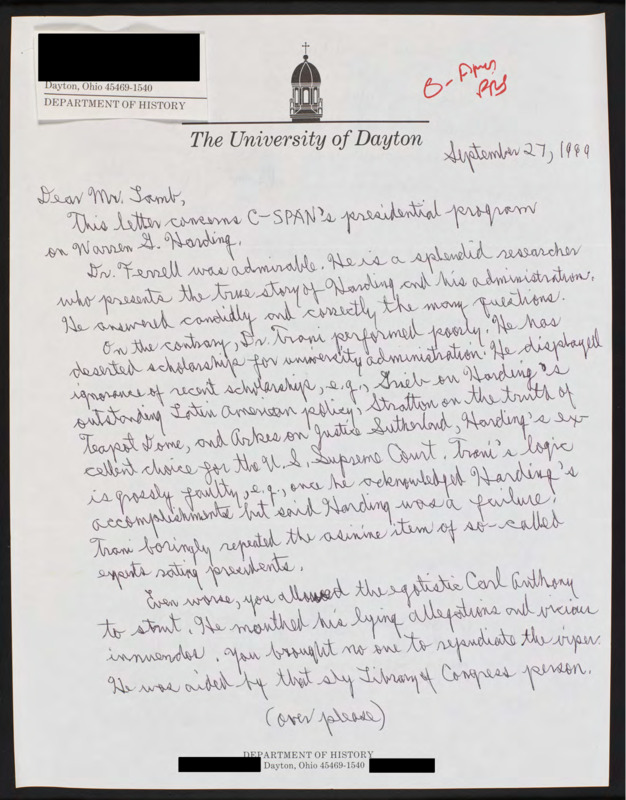 Dayton, Ohio 45469-1540
DEPARTMENT OF HISTORY
The University of Dayton
September 27, 1999
Dear Mr. Lamb,
This letter concerns C-SPAN's presidential program
on Warren G. Harding.
Dr. Ferrell was admirable. He is a splendid researcher
who presents the true story of Harding and his administration.
He answered candidly and correctly the many questions.
On the contrary, Dr. Trani performed poorly. He has
deserted scholarship for university administration. He displayed
ignorance of recent scholarship, e.g., Grieb on Harding's
outstanding Latin American policy, Stratton on the truth of
Teapot Dome, and Arkes on Justice Sutherland, Harding's ex-
cellent choice for the U.S. Supreme Court. Trani's logic
is grossly faulty, e.g., once he acknowledged Harding's
accomplishments but said Harding was a failure!
Trani boringly repeated the asinine item of so-called
experts rating presidents.
Even worse, you allowed the egotistic Carl Anthony
to strut. He mouthed his lying allegations and vicious
innuendos. You brought no one to repudiate the viper.
He was aided by that sly Library of Congress person.
(over please)
DEPARTMENT OF HISTORY
Dayton, Ohio 45469-1540